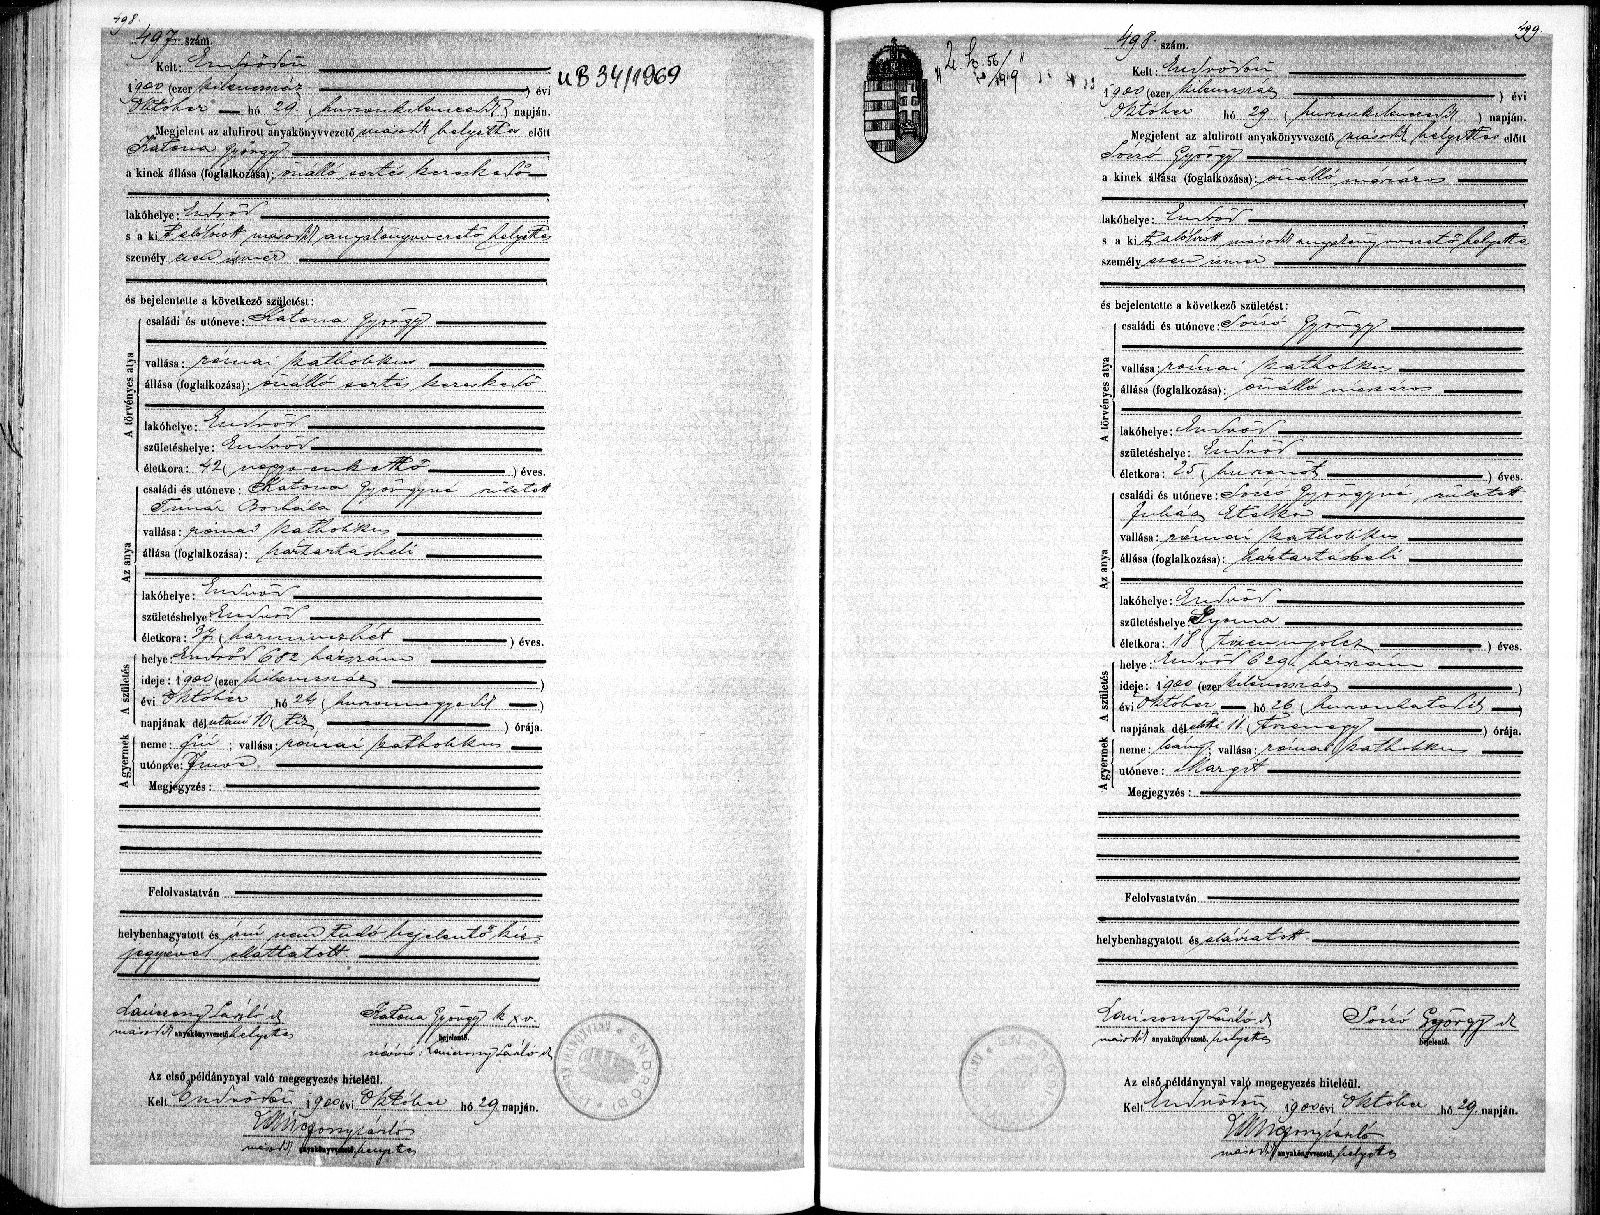 498.
497. szám.
Kelt: Endrődön
1900 (ezer kilencszáz ) évi
Október hó 29. (huszonkilencedik) napján.
Megjelent az alulirott anyakönyvvezető másodh helyettes előtt
Katona György
a kinek állása (foglalkozása): önálló sertés kereskedő
lakóhelye: Endrőd
s a kit alólirott másodh anyakönyvvezető helyettes
személy
és bejelentette a következő születést:
A törvényes atya
családi és utóneve: Katona György
vallása: római katholikus
állása (foglalkozása): önálló sertés kereskedő
lakóhelye: Endrőd
születéshelye: Endrőd
életkora: 42 (negyvenkettő ) éves.
Az anya
családi és utóneve: Katona Györgyné született
Timár Borbála
vallása: római katholikus
állása (foglalkozása): háztartásbeli
lakóhelye: Endrőd
születéshelye: Endrőd
életkora: 37 (harminczhét ) éves.
A születés
helye: Endrőd 682 házszám
ideje: 1900 (ezer kilenczszáz )
évi Október hó 24 (huszonnegyedik )
napjának dél utáni 10 (tíz ) órája.
A gyermek
neme: fiú ; vallása: római katholikus
utóneve: Imre
Megjegyzés:
Felolvastatván
helybenhagyatott és írni nem tudó bejelentő kéz-
jegyével elláttatott.
Laucsony László sk Katona György k x v.
másodh anyakönyvvezető helyettes bejelentő.
névíró: Laucsony László sk
Az első példánynyal való megegyezés hiteléül.
Kelt Endrődön 1900 évi Október hó 29 napján.
Laucsony László
másodh anyakönyvvezető helyettes
UB 34/1969
499.
498. szám.
Kelt: Endrődön
1900 (ezer kilenczszáz ) évi
Október hó 29 (huszonkilenczedik ) napján.
Megjelent az alulirott anyakönyvvezető másodh helyettes előtt
Soczó György
a kinek állása (foglalkozása): önálló mészáros
lakóhelye: Endrőd
s a kit alólirott másodh anyakönyvvezető helyettes
személyesen ismer
és bejelentette a következő születést:
A törvényes atya
családi és utóneve: Soczó György
vallása: római katholikus
állása (foglalkozása): önálló mészáros
lakóhelye: Endrőd
születéshelye: Endrőd
életkora: 25 (huszonöt ) éves.
Az anya
családi és utóneve: Soczó Györgyné, született
Juhász Etelka
vallása: római katholikus
állása (foglalkozása): háztartásbeli
lakóhelye: Endrőd
születéshelye: Gyoma
életkora: 18 (tizennyolcz ) éves.
A születés
helye: Endrőd 629 házszám
ideje: 1900 (ezer kilenczszáz )
évi Október hó 26 (huszonhatodik )
napjának dél előtti 11 (tizenegy ) órája.
A gyermek
neme: leány; vallása: római katholikus
utóneve: Margit
Megjegyzés:
Felolvastatván
helybenhagyatott és aláiratott.
Laucsony László sk Soczó György sk
másodh anyakönyvvezető, helyettes bejelentő.
Az első példánynyal való megegyezés hiteléül.
Kelt Endrődön 1900 évi Október hó 29 napján.
Laucsony László
másodh anyakönyvvezető, helyettes